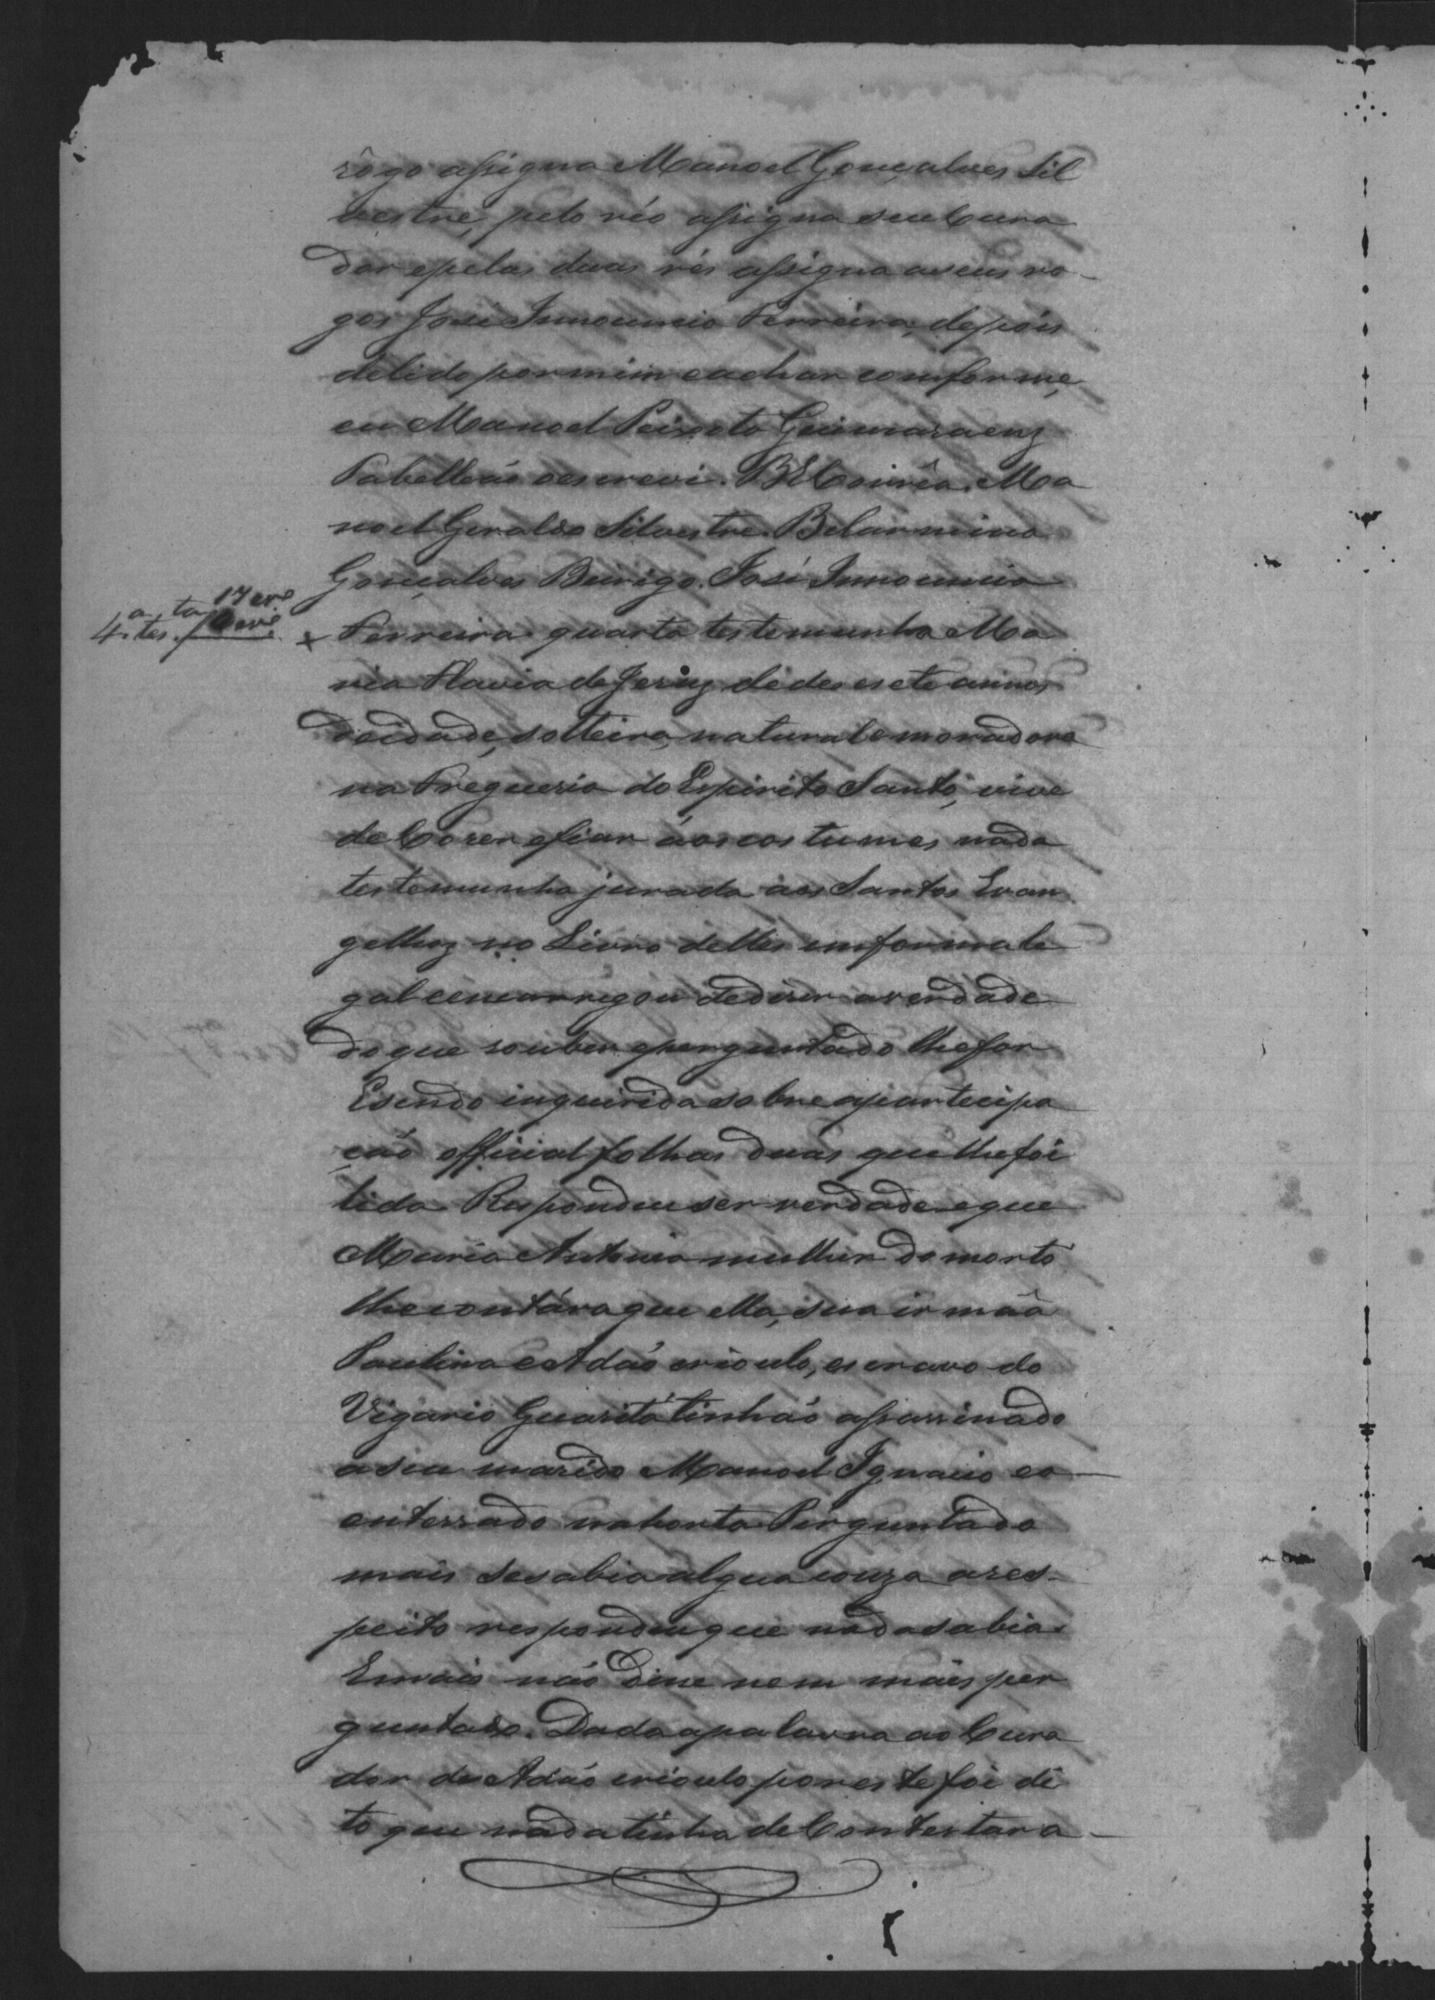 rôgo assigna Manoel Gonçalves Sil
vestre, pelo réo assigna seu Cura
dor e pelas duas rés assigna a seus ro-
gos José Innocencio Ferreira, depois
de lido por mim e achar comforme,
eu Manoel Peixoto Guimaraens
Tabelleaó o escrevi. Corrêa. Ma
noel Geraldo Silvestre. Belarmino
Gonçalves Burigo. José Innocencio
4.ª tes.ta
x Ferreira quarta testemunha Ma
ria Flavia de Jesuz de desesete annos
de idade, solteira, natural e moradora
na Freguesia do Espirito Santo, vive
de Cozer e fiar áos costumes nada
testemunha jurada aos Santos Evan
gelhoz no Livro delles em forma le
gal encarregou de dizer a verdade
do que souber e perguntado lhe for
E sendo inquirida sobre apartecipa
çaó official folhas duas que lhe foi
lida Respondeu ser verdade e que
Maria Antonia mulher do morto
lhe contára que ella, sua irmãa
Paulina e Adaó crioulo, escravo do
Vigario Guaritá tinhaó assassinado
a seu marido Manoel Ignacio e o
enterrado na horta Perguntada
mais se sabia algua couza a res-
peito respondeu que nada sabia.
E mais naó disse nem mais per
guntado. Dada a palavra ao Cura
dor de Adaó crioulo por este foi di
to que nada tinha de Contestar a-